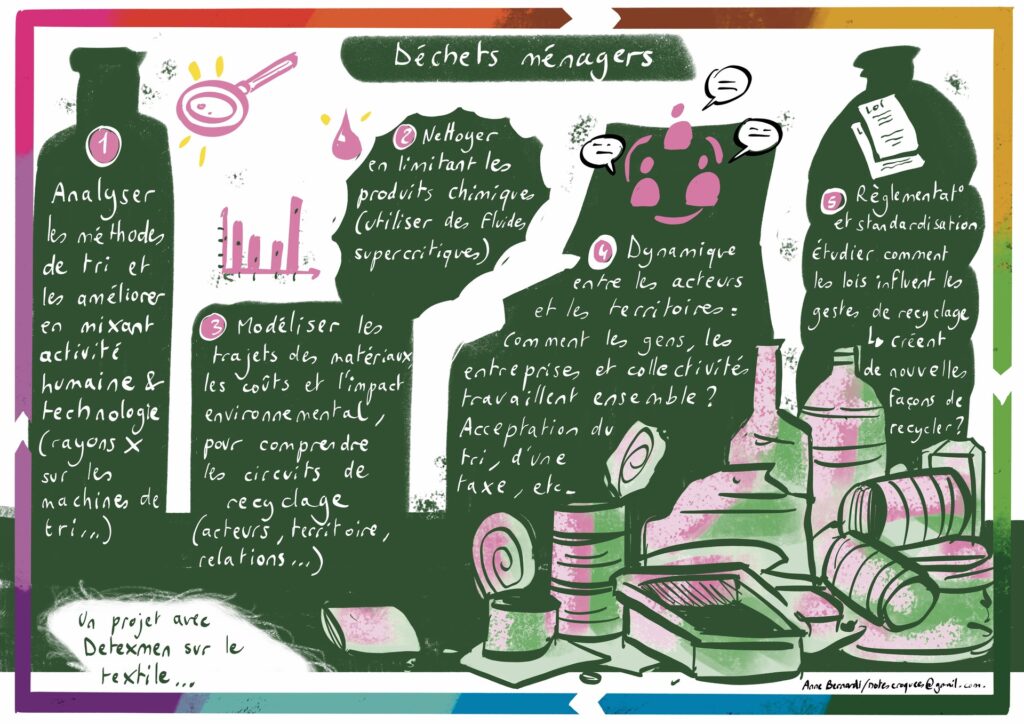 Déchets ménagers
1
Analyser
les méthodes
de tri et
les améliorer
en mixant
activité
humaine &
technologie
(rayons X
sur les
machines de
tri...)
2 Nettoyer
en limitant les
produits chimiques
(utiliser des fluides
supercritiques)
3 Modéliser les
trajets des matériaux,
les coûts et l'impact
environnemental,
pour comprendre
les circuits de
recyclage
(acteurs, territoire,
relations...)
4 Dynamique
entre les acteurs
et les territoires :
comment les gens, les
entreprises et collectivités
travaillent ensemble ?
Acceptation du
tri, d'une
taxe, etc_
LOI
5 Règlementat°
et standardisation
étudier comment
les lois influent les
gestes de recyclage
↳ créent
de nouvelles
façons de
recycler ?
Un projet avec
Detexmen sur le
textile...
Anne Bernardi/notescroquees@gmail.com.